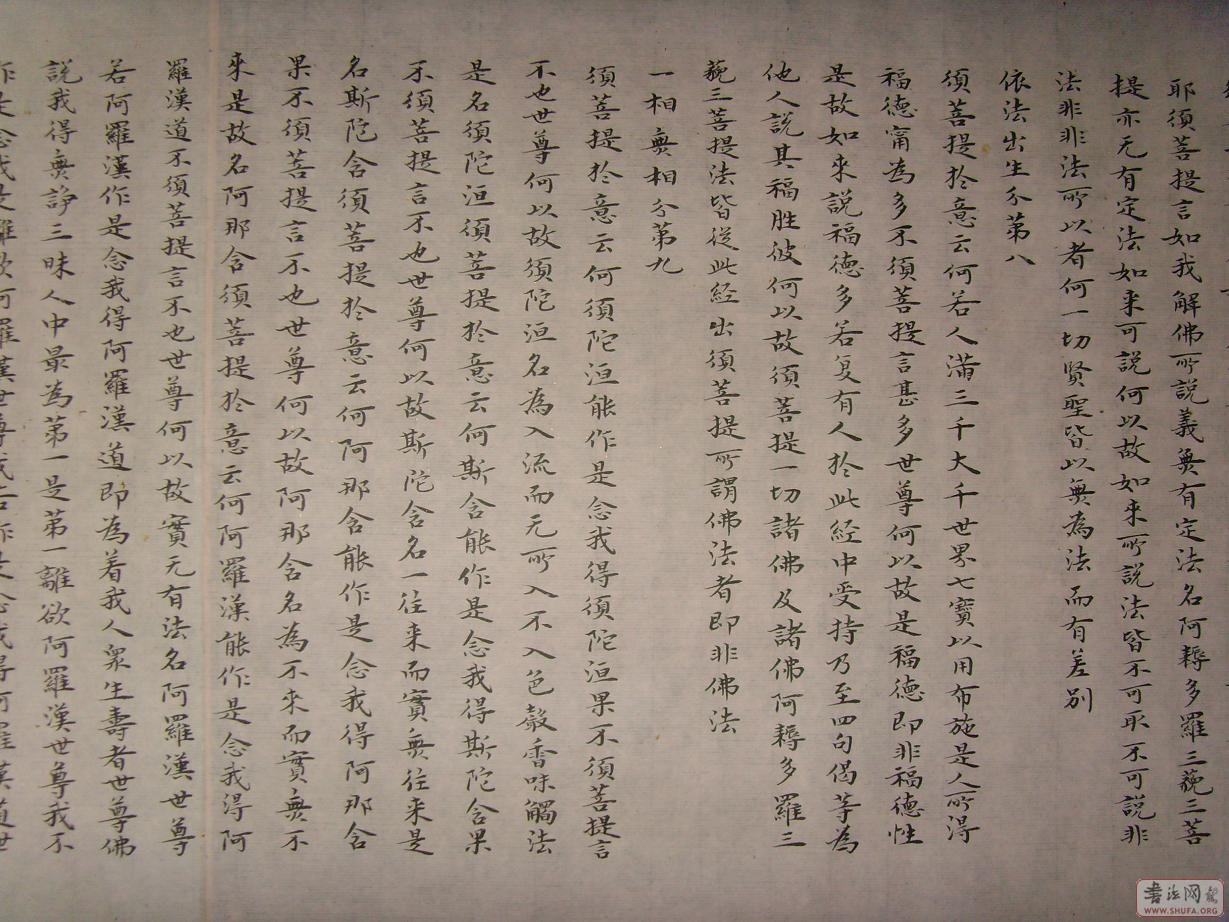 耶須菩提言如我解佛所說義無有定法名阿耨多羅三藐三菩
提亦无有定法如来可說何以故如来所說法皆不可取不可說非
法非非法所以者何一切賢聖皆以無為法而有差別
依法出生分第八
須菩提於意云何若人滿三千大千世界七寶以用布施是人所得
福德甯為多不須菩提言甚多世尊何以故是福德即非福德性
是故如来說福德多若复有人於此經中受持乃至四句偈等為
他人說其福胜彼何以故須菩提一切諸佛及諸佛阿耨多羅三
藐三菩提法皆從此經出須菩提所謂佛法者即非佛法
一相無相分第九
須菩提於意云何須陀洹能作是念我得須陀洹果不須菩提言
不也世尊何以故須陀洹名為入流而无所入不入色聲香味觸法
是名須陀洹須菩提於意云何斯含能作是念我得斯陀含果
不須菩提言不也世尊何以故斯陀含名一往来而實無往来是
名斯陀含須菩提於意云何阿那含能作是念我得阿那含
果不須菩提言不也世尊何以故阿那含名為不来而實無不
来是故名阿那含須菩提於意云何阿羅漢能作是念我得阿
羅漢道不須菩提言不也世尊何以故實无有法名阿羅漢世尊
若阿羅漢作是念我得阿羅漢道即為着我人眾生壽者世尊佛
說我得無諍三昧人中最為第一是第一離欲阿羅漢世尊我不
作是念我是離欲阿羅漢世尊我若作是念我得阿羅漢道世
書法网
WWW.SHUFA.ORG